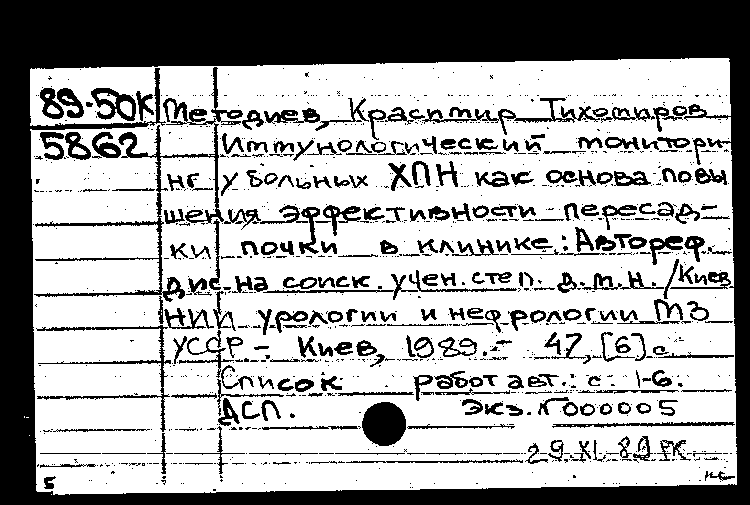 89-50К Методиев, Красимир Тихомиров
5862 Иммунологический монитори-
нг у больных ХПН как основа повы
шения эффективности пересад-
ки почки в клинике: Автореф.
дис. на соиск. учен. степ. д.м.н. / Киев
НИИ урологии и нефрологии МЗ
УССР - Киев, 1989. - 47, [6] с
Список работ авт.: с. 1-6.
ДСП. экз. N 000005
29.XI.89 РК
5